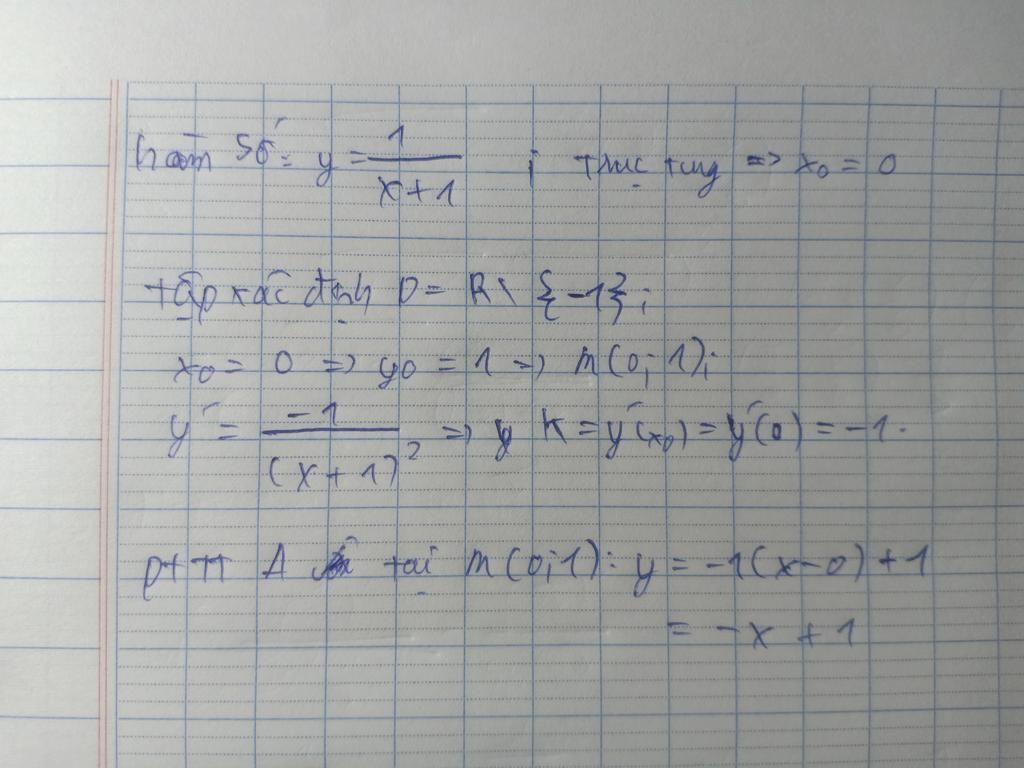 hàm số: y = 1/(x+1) ; trục tung => x0 = 0
tập xác định D = R \ {-1};
x0 = 0 => y0 = 1 => M(0; 1);
y' = -1/(x+1)² => K = y'(x0) = y'(0) = -1.
pt TT Δ tại M(0;1): y = -1(x-0)+1
= -x + 1